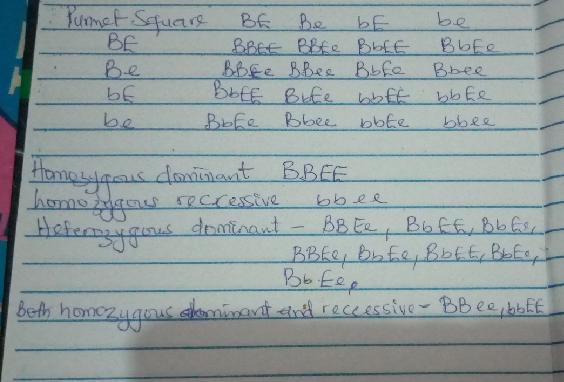 Punnet Square BE Be bE be
BE BBEE BBEe BbEE BbEe
Be BBEe BBee BbEe Bbee
bE BbEE BbEe bbEE bbEe
be BbEe Bbee bbEe bbee
Homozygous dominant BBEE
homozygous reccessive bbee
Heterozygous dominant - BBEe, BbEE, BbEe,
BBEe, BbEe, BbEE, BbEe,
BbEe,
Both homozygous dominant and reccessive - BBee, bbEE